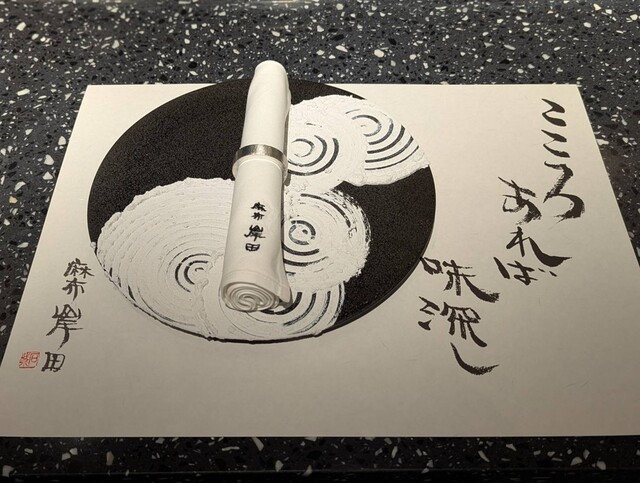 こころ
あれば
味深し
麻布 岸田
麻布 岸田